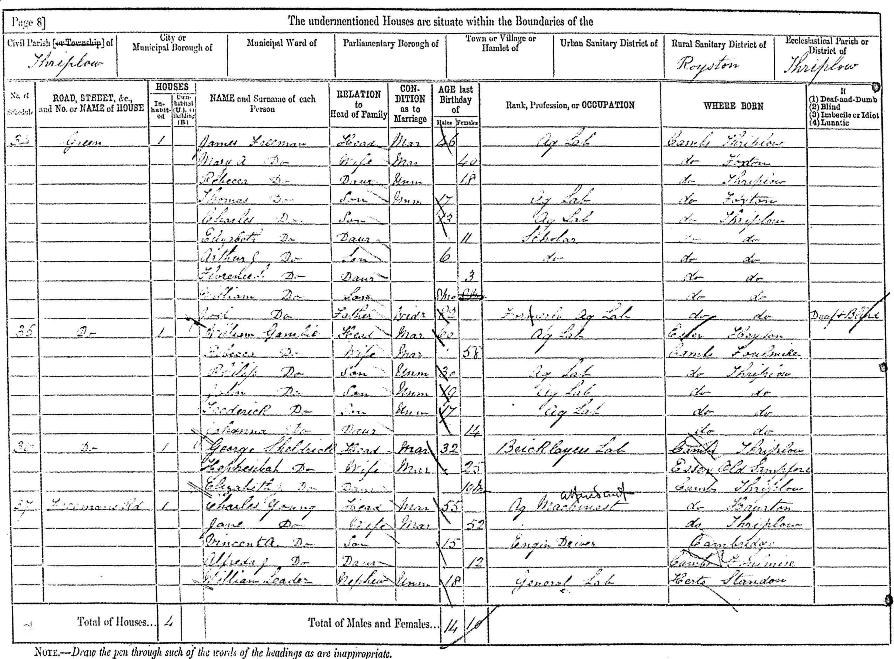 Page 8] The undermentioned Houses are situate within the Boundaries of the
Civil Parish [or Township] of City or Municipal Borough of Municipal Ward of Parliamentary Borough of Town or Village or Hamlet of Urban Sanitary District of Rural Sanitary District of Ecclesiastical Parish or District of
Thriplow Royston Thriplow
No. of Schedule ROAD, STREET, &c., and No. or NAME of HOUSE HOUSES In-habited NAME and Surname of each Person RELATION to Head of Family CON-DITION as to Marriage AGE last Birthday of Males Females Rank, Profession, or OCCUPATION WHERE BORN If (1) Deaf-and-Dumb (2) Blind (3) Imbecile or Idiot (4) Lunatic
34 Green 1 James Freeman Head Mar 46 Ag Lab Cambs Thriplow
Mary A Do Wife Mar 40 do Foxton
Rebecca Do Daur Unm 18 do Thriplow
Thomas Do Son Unm 17 Ag Lab do Foxton
Charles Do Son 13 Ag Lab do Thriplow
Do Daur 11 Scholar do do
Arthur J Do Son 6 do do do
Florence Do Daur 3 do do
William Do Son do do
Do Father Widr Formerly Ag Lab do do Deaf & Blind
35 Do 1 William Gamble Head Mar 60 Ag Lab Essex
Rebecca Do Wife Mar 58 Cambs Foulmire
Philip Do Son Unm 30 Ag Lab do Thriplow
John Do Son Unm 19 Ag Lab do do
Frederick Do Son Unm 17 Ag Lab do do
Do Daur 14 do do
36 Do 1 George Sheldrick Head Mar 32 Bricklayers Lab Cambs Thriplow
Do Wife Mar 25 Essex Old Sampford
Elizabeth Do Daur Camb Thriplow
37 Freemans Rd 1 Charles Young Head Mar 55 Ag Machinest attendant do
Jane Do Wife Mar 52 do Thriplow
Vincent A. Do Son 15 Engin Driver Cambridge
Alfreda J Do Daur 12 Cambs Foulmire
William Leader Nephew Unm 18 General Lab Herts Standon
Total of Houses... 4 Total of Males and Females... 14 10
NOTE.—Draw the pen through such of the words of the headings as are inappropriate.